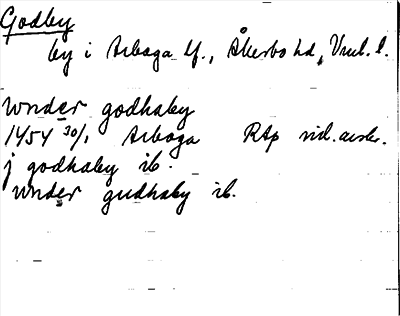 Godby
by i Arboga lf., Åkerbo hd, Vml. l.
wnder godhaby
1454 30/1 Arboga RAp vid. avskr.
j godhaby ib.
wnder gudhaby ib.